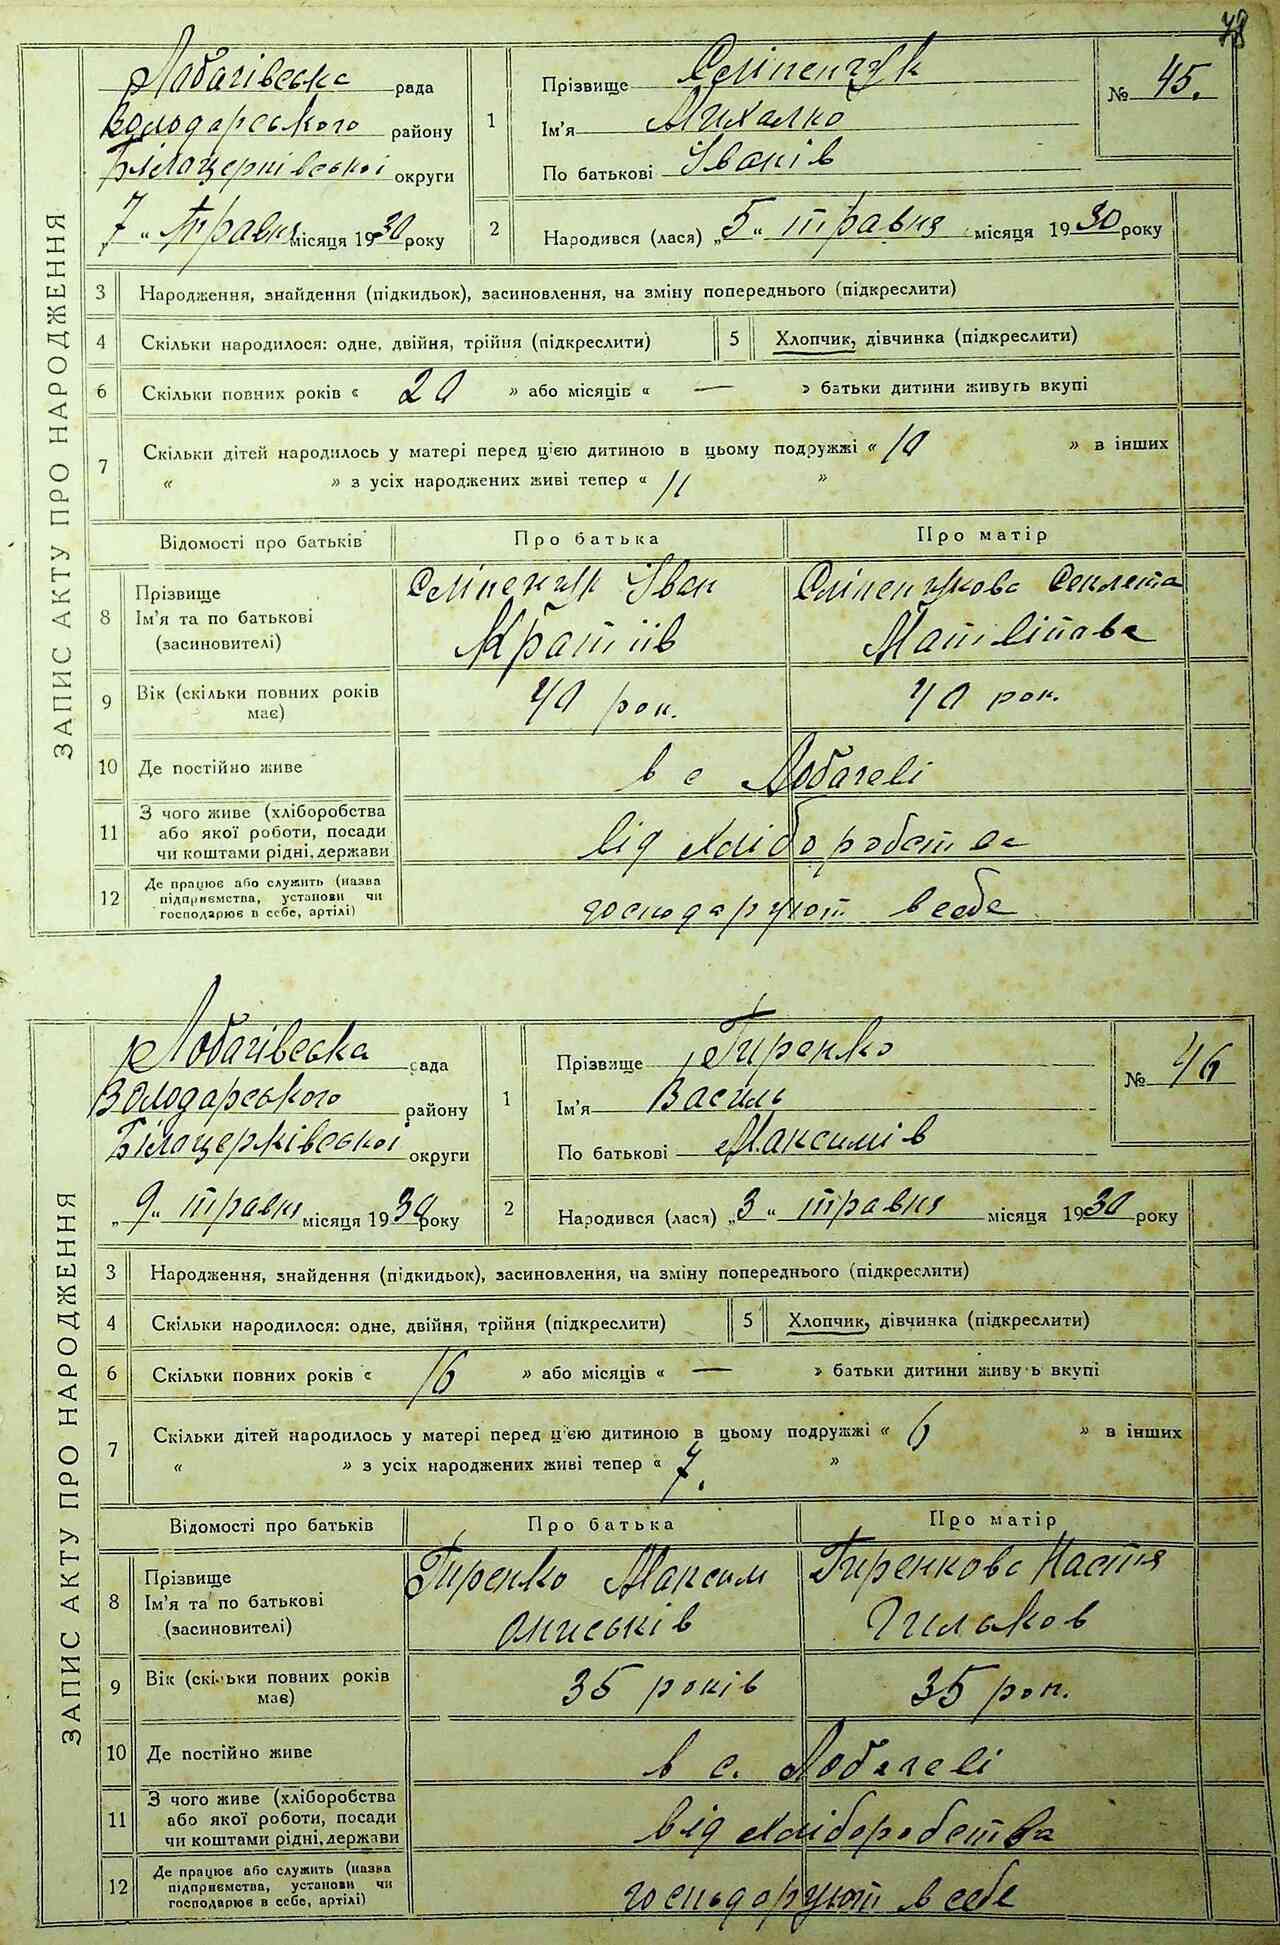 48
ЗАПИС АКТУ ПРО НАРОДЖЕННЯ
Лобачівська рада
Володарського району
Білацерківської округи
7 „ травня місяця 1930 року
1 Прізвище Сліпенчук
Ім'я Михалко
По батькові Іванів
№ 45.
2 Народився (лася) „5“ травня місяця 1930 року
3 Народження, знайдення (підкидьок), засиновлення, на зміну попереднього (підкреслити)
4 Скільки народилося: одне, двійня, трійня (підкреслити) 5 Хлопчик, дівчинка (підкреслити)
6 Скільки повних років « 20 » або місяців « — » батьки дитини живуть вкупі
7 Скільки дітей народилось у матері перед цією дитиною в цьому подружжі « 10 » в інших
« » з усіх народжених живі тепер « 11 »
Відомості про батьків Про батька Про матір
8 Прізвище Ім'я та по батькові (засновителі) Сліпенчук Іван Сліпенчукова
9 Вік (скільки повних років має) 40 рок. 40 рок.
10 Де постійно живе в с Лобачеві
11 З чого живе (хліборобства або якої роботи, посади чи коштами рідні, держави від хліборобства
12 Де працює або служить (назва підприємства, установи чи господарює в себе, артілі) господарують в себе
ЗАПИС АКТУ ПРО НАРОДЖЕННЯ
Лобачівська рада
Володарського району
Білацерківської округи
„9“ травня місяця 1930 року
1 Прізвище Гиренко
Ім'я Василь
По батькові Максимів
№ 46
2 Народився (лася) „3“ травня місяця 1930 року
3 Народження, знайдення (підкидьок), засиновлення, на зміну попереднього (підкреслити)
4 Скільки народилося: одне, двійня, трійня (підкреслити) 5 Хлопчик, дівчинка (підкреслити)
6 Скільки повних років « 16 » або місяців « — » батьки дитини живуть вкупі
7 Скільки дітей народилось у матері перед цією дитиною в цьому подружжі « 6 » в інших
« » з усіх народжених живі тепер « 7. »
Відомості про батьків Про батька Про матір
8 Прізвище Ім'я та по батькові (засиновителі) Гиренко Максим Ониськів Гиренкова Настя
9 Вік (скільки повних років має) 35 років 35 рок.
10 Де постійно живе в с. Лобачеві
11 З чого живе (хліборобства або якої роботи, посади чи коштами рідні, держави від хліборобства
12 Де працює або служить (назва підприємства, установи чи господарює в себе, артілі) господорують в себе